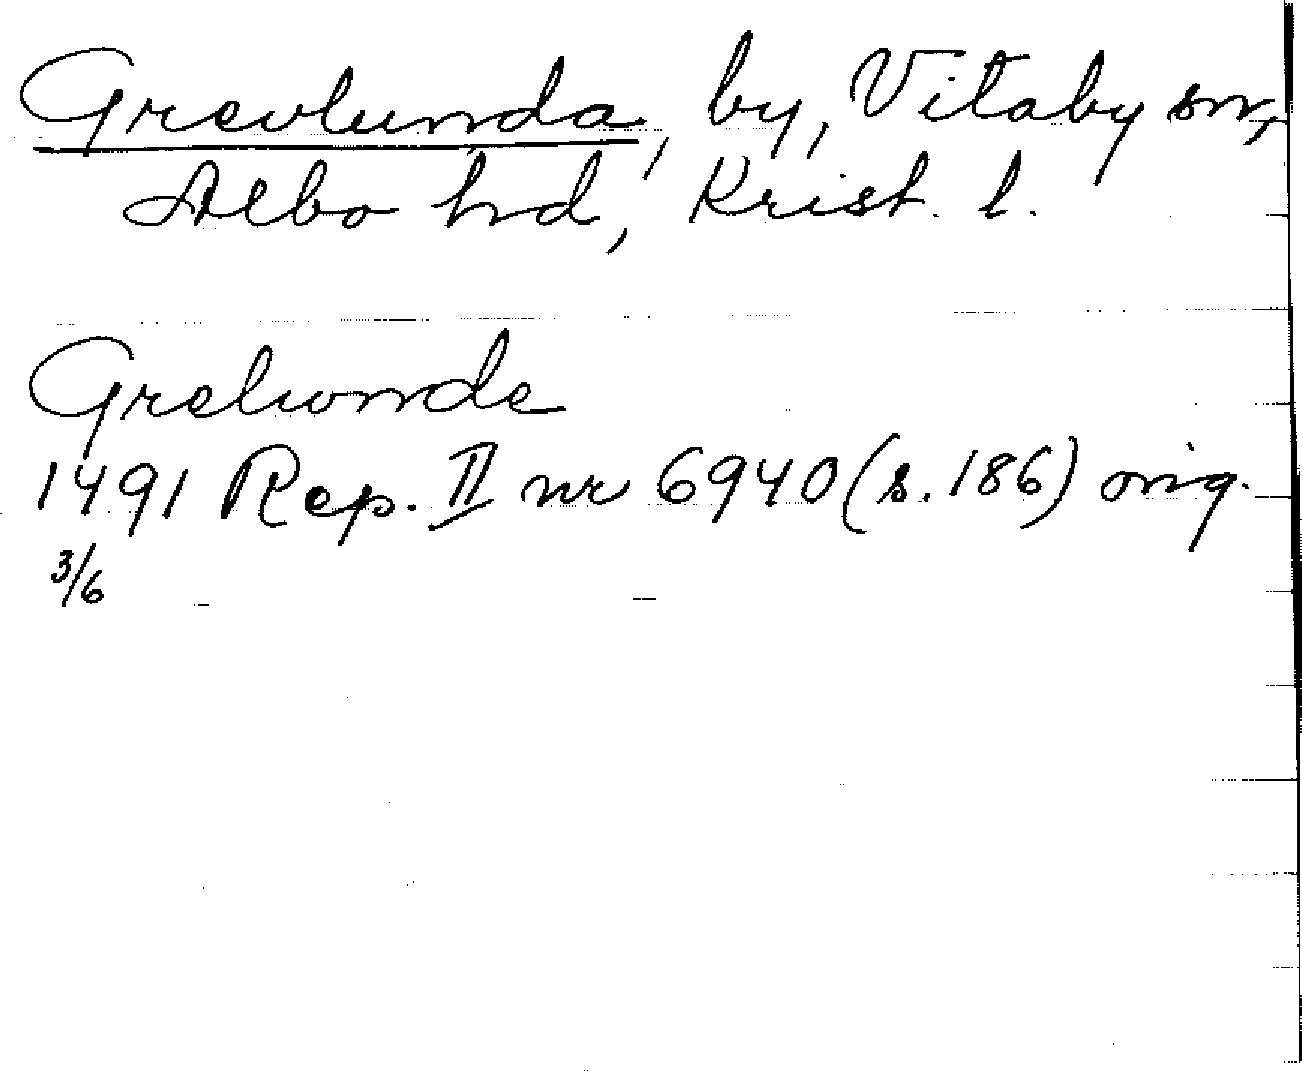 Grevlunda, by, Vitaby sn,
Albo hd, Krist. l.
Grelwnde
1491 Rep. II nr 6940 (s. 186) orig.
3/6